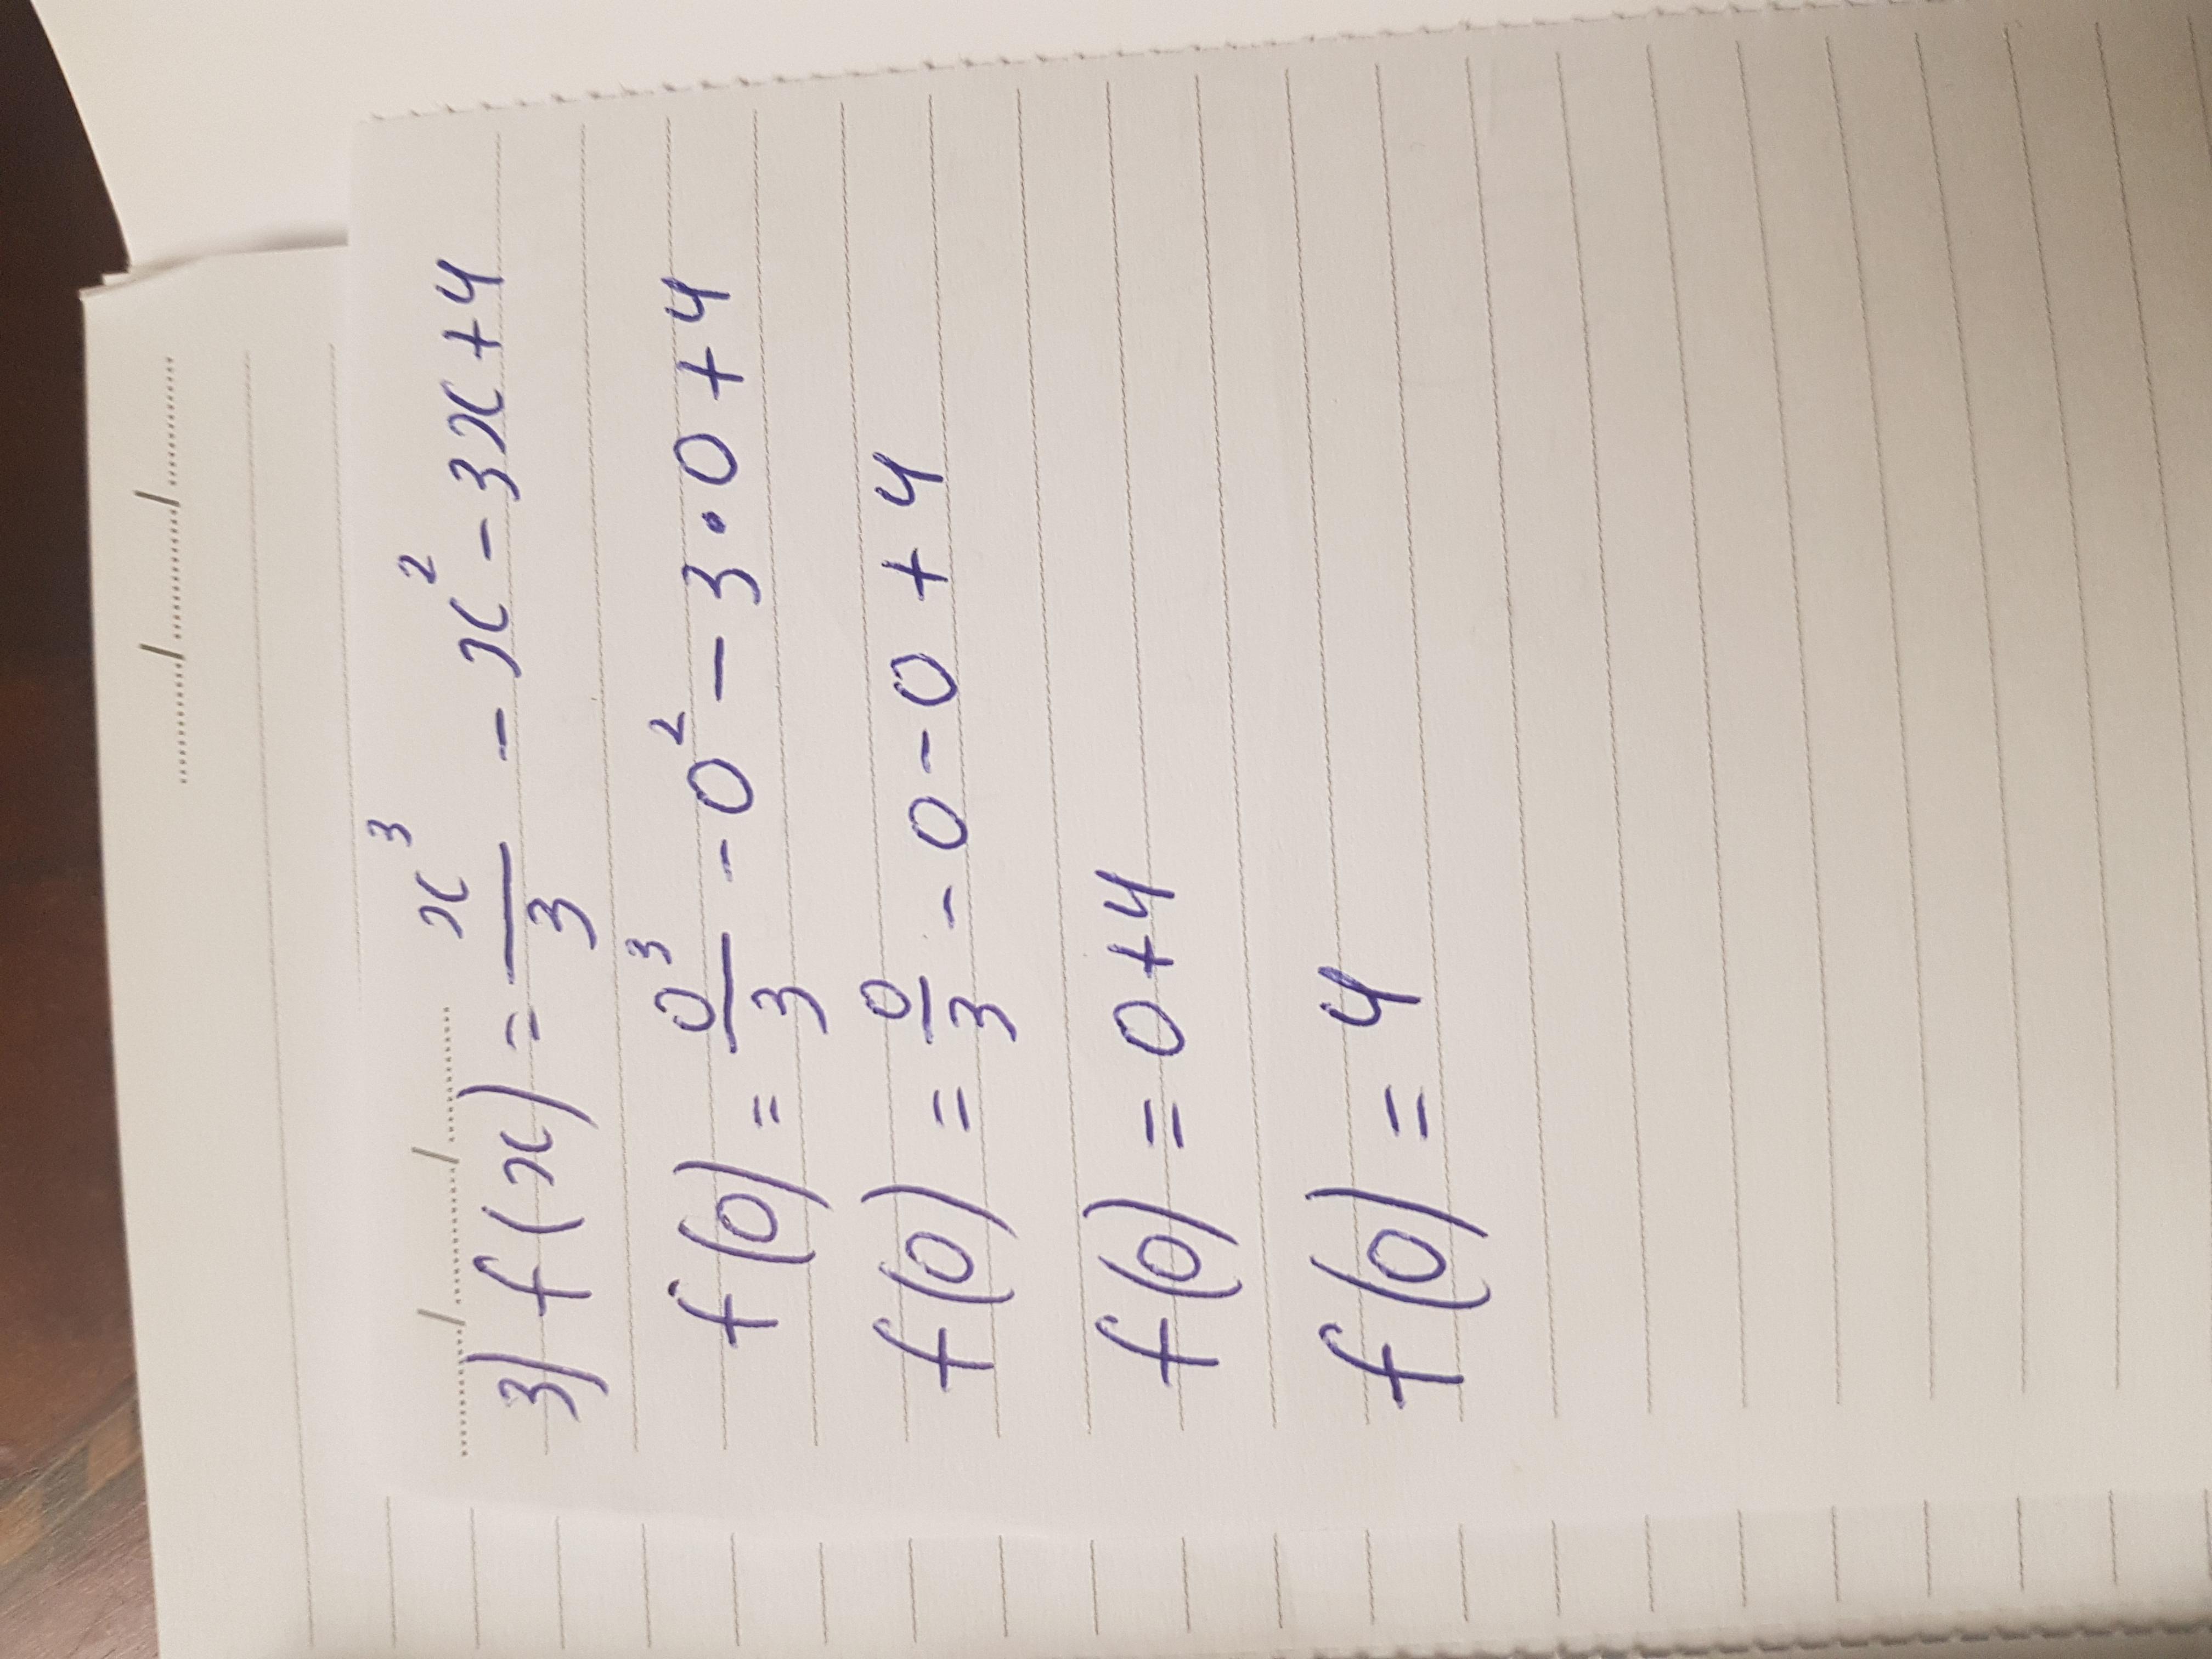 3) f(x) = x³/3 - x² - 3x + 4
f(0) = 0³/3 - 0² - 3•0 + 4
f(0) = 0/3 - 0 - 0 + 4
f(0) = 0 + 4
f(0) = 4